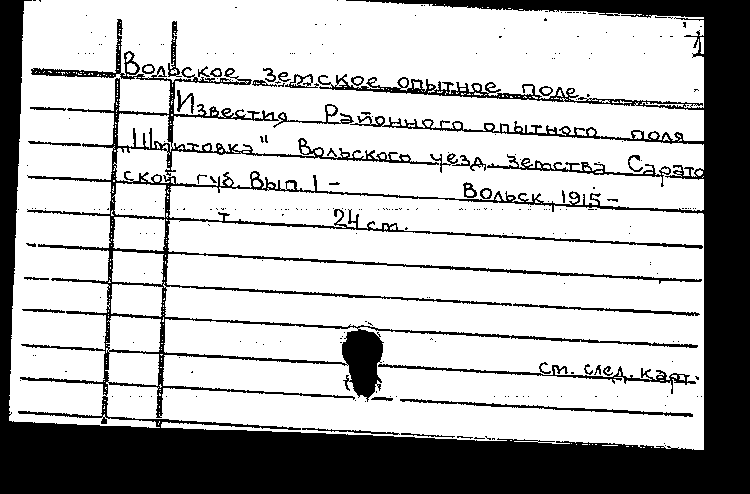 1
Вольское земское опытное поле.
Известия Районного опытного поля
„Шмитовка" Вольского уезд. земства Сарато
ской губ. Вып. 1 - Вольск, 1915 -
т. 24 см.
см. след. карт.